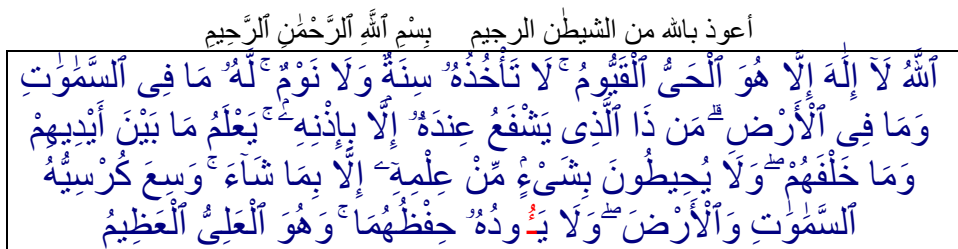 أعوذ بالله من الشيطٰن الرجيم بِسْمِ ٱللَّهِ ٱلرَّحْمَٰنِ ٱلرَّحِيمِ
ٱللَّهُ لَآ إِلَٰهَ إِلَّا هُوَ ٱلْحَىُّ ٱلْقَيُّومُ ۚ لَا تَأْخُذُهُۥ سِنَةٌ وَلَا نَوْمٌ ۚ لَّهُۥ مَا فِى ٱلسَّمَٰوَٰتِ
وَمَا فِى ٱلْأَرْضِ ۗ مَن ذَا ٱلَّذِى يَشْفَعُ عِندَهُۥٓ إِلَّا بِإِذْنِهِۦ ۚ يَعْلَمُ مَا بَيْنَ أَيْدِيهِمْ
وَمَا خَلْفَهُمْ ۖ وَلَا يُحِيطُونَ بِشَىْءٍ مِّنْ عِلْمِهِۦٓ إِلَّا بِمَا شَآءَ ۚ وَسِعَ كُرْسِيُّهُ
ٱلسَّمَٰوَٰتِ وَٱلْأَرْضَ ۖ وَلَا يَـُٔودُهُۥ حِفْظُهُمَا ۚ وَهُوَ ٱلْعَلِىُّ ٱلْعَظِيمُ